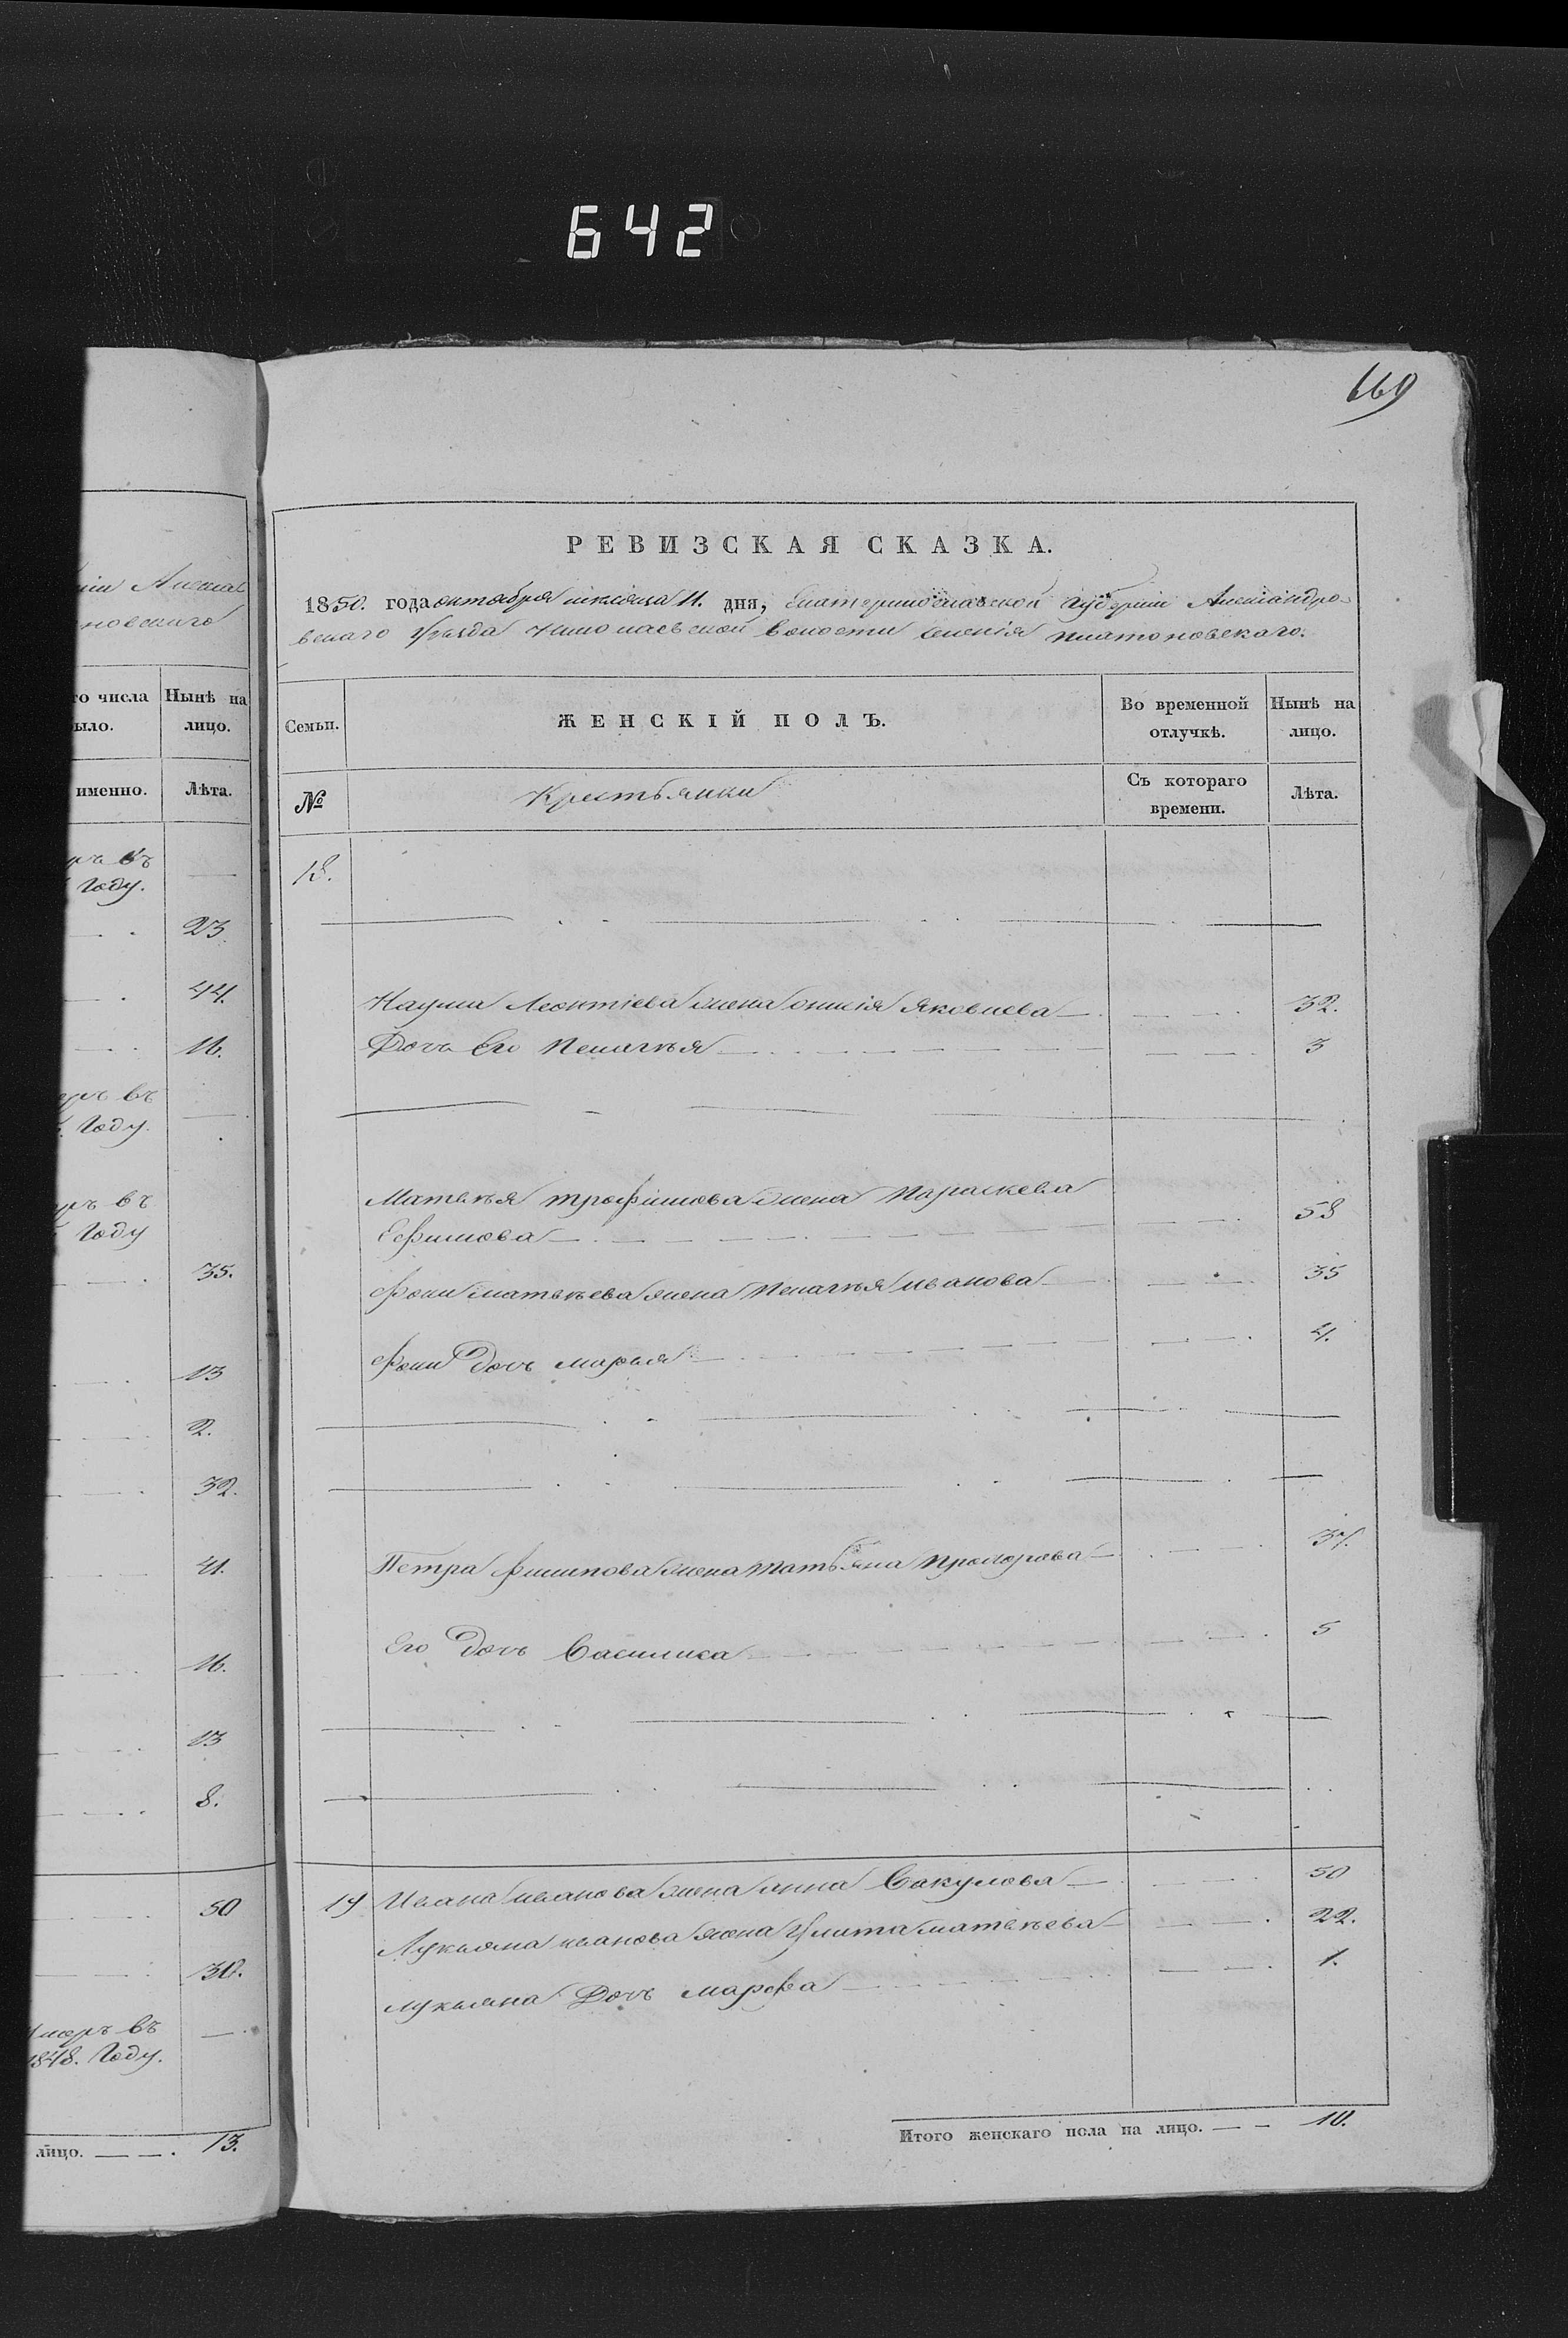 642
669
РЕВИЗСКАЯ СКАЗКА.
1850. года октября мѣсяца 11. дня, Екатеринославской Губерніи Александро-
вскаго Уѣзда волости селенія Платоновскаго.
Семьи.
ЖЕНСКІЙ ПОЛЪ.
Во временной отлучкѣ.
Нынѣ на лицо.
№
Крестьянки
Съ котораго времени.
Лѣта.
18.
Наума Леонтіева жена Яковлева 32.
Дочь Его Пелагѣя 3
Матвѣя Трофимова жена Параскева
Ефимова 58
Фоки Матвѣева жена Пелагѣя Иванова 35
Фоки Дочь Марья 4.
Петра Филипова жена Татьяна Прохорова 37.
Его Дочь Василиса 5
19 Ивана Иванова жена Анна Вакулова 50
Лукьяна Иванова жена Улита Матвѣева 22.
Лукьяна Дочь Марфа 1.
Итого женскаго пола на лицо. 10.
го числа
ыло.
Нынѣ на
лицо.
именно.
Лѣта.
ръ въ
Году.
23
44.
16.
ръ въ
Году.
ръ въ
Году
35.
13
2.
32.
41.
16.
13
8.
50
30.
Умеръ въ
1848. Году.
лицо. 13.